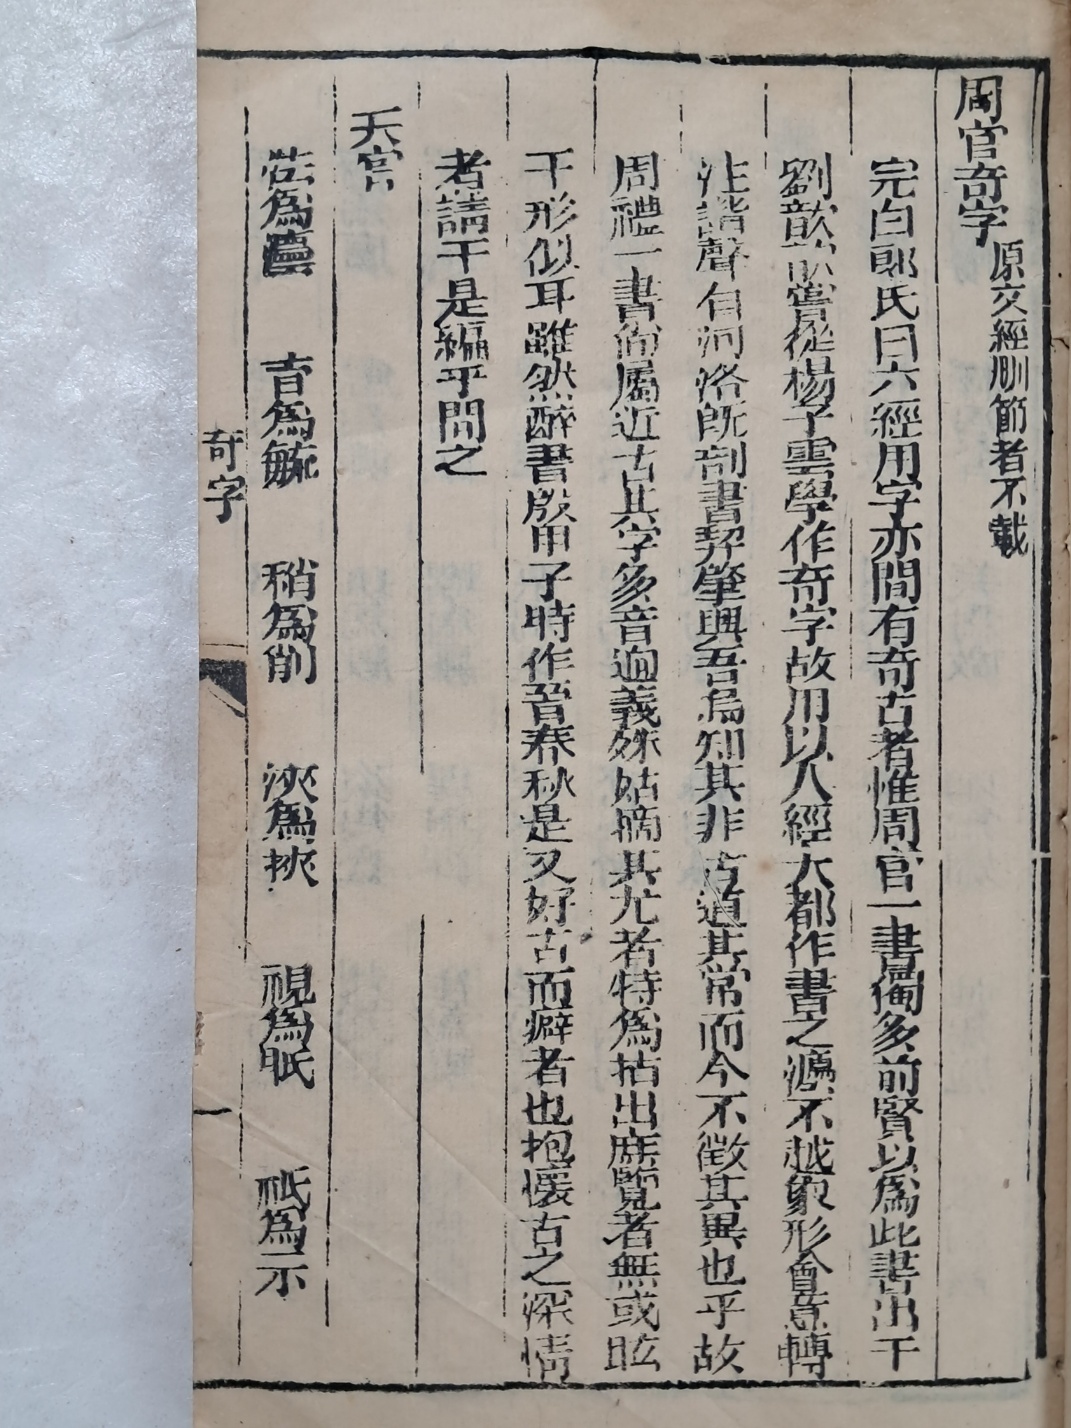 周官奇字原文經刪節者不載
完白郎氏曰六經用字亦間有奇古者惟周官一書獨多前賢以爲此書出于
劉歆歆嘗從楊子雲學作奇字故用以入經大都作書之源不越象形會意轉
注諧聲自河洛旣剖書契肇興吾烏知其非古道其常而今不徵其異也乎故
周禮一書尚屬近古其字多音迥義殊姑摘其尤者特爲拈出庶覽者無或眩
于形似耳雖然醉書殷甲子時作晉春秋是又好古而癖者也抱懷古之深情
者請于是編乎問之
天官
爲 育爲毓 稍爲削 浹爲挾 視爲眡 祇爲示
奇字 一